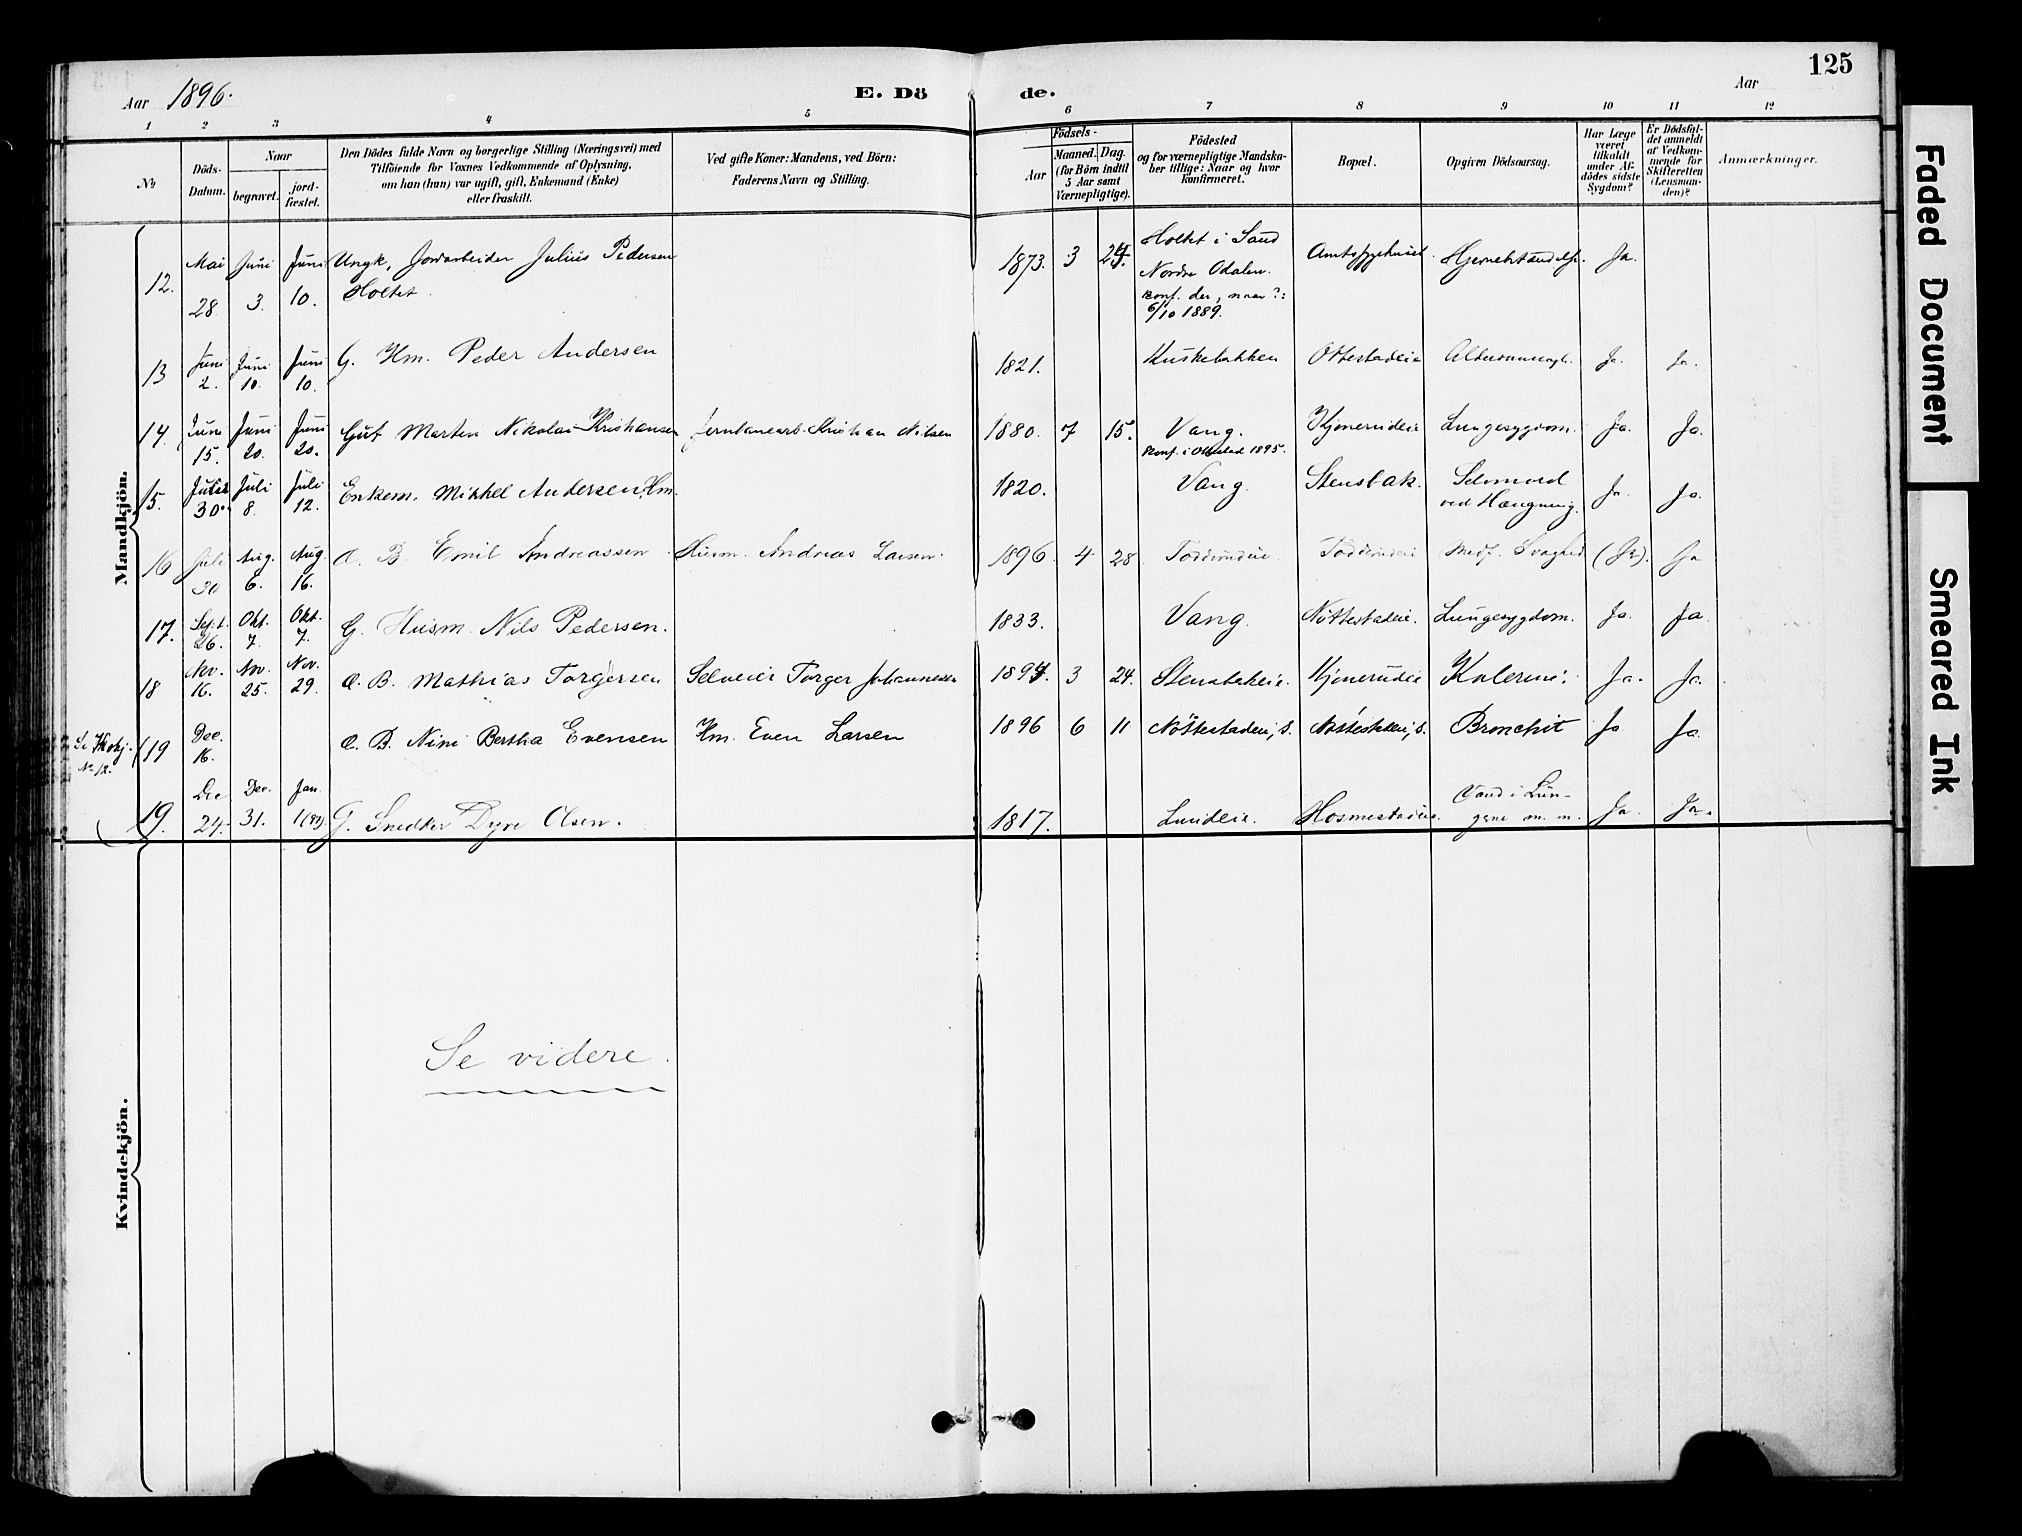 125
Aar 1896.
E. Dö de.
Aar
1 2 3 4 5 6 7 8 9 10 11 12
No
Döds-Datum.
Naar
begravet.
jord-fæstet.
Den Dödes fulde Navn og borgerlige Stilling (Næringsvei) med
Tilföiende for Voxnes Vedkommende af Oplysning,
om han (hun) var ugift, gift, Enkemand (Enke)
eller fraskilt.
Ved gifte Koner: Mandens, ved Börn:
Faderens Navn og Stilling.
Födsels-
Aar
Maaned. Dag.
(for Börn indtil
5 Aar samt
Værnepligtige).
Födested
og for værnepligtige Mandska-
ber tillige: Naar og hvor
konfirmeret.
Bopæl.
Opgiven Dödsaarsag.
Har Læge
været
tilkaldt
under Af-
dödes sidste
Sygdom?
Er Dödsfal-
det anmeldt
af Vedkom-
mende for
Skifteretten
(Lensman-
den)?
Anmærkninger.
Mandkjön.
12. Mai 28 Juni 3. Juni 10. Ungk. Jordarbeider Julius Pedersen Holtet 1873. 3 Holtet i Sand Nordre Odalen. konf. der, naar?: 6/10 1889. Amtssygehuset Ja.
13 Juni 2. Juni 10. Juni 10. G. Hm. Peder Andersen 1821. Kuskebakken Ottestadeie Ja. Ja.
14. Juni 15. Juni 20. Juni 20. Gut Marten Nikolai Kristiansen Kristian Nilsen 1880. 7 15. Vang. konf. i Ottestad 1895. Kjonerudeie Lungesygdom. Ja. Ja.
15. 30. Juli 8. Juli 12. Enkem. Mikkel Andersen, Hm. 1820. Vang Stensbak. Selvmord ved Hængning. Ja. Ja.
16 Juli 30 Aug. 6. Aug. 16. Æ. B. Emil Andreassen. Husm. Andreas Larsen. 1896. 4 28 Todderudeie. Todderudeie Medf. Svaghed (Ja). Ja
17. Sept. 26. Okt. 7. Okt. 7. G. Husm. Nils Pedersen. 1833. Vang. Nöttestadeie. Lungesygdom. Ja. Ja
18 Nov. 16. Nov. 25. Nov. 29. Æ. B. Mathias Torgersen Selveier Torger Johannessen 1894. 3 24. Stensbakeie. Kjonerudeie Kolerine. Ja. Ja.
Se Kvkj. No 12. 19 Dec. 16. Æ. B. Nini Bertha Evensen Hm. Even Larsen 1896 6 11 Nöttestadeie, s. Nöttestadeie, s. Bronchit Ja Ja.
19. Dec 24. Dec. 31. Jan. 1 (97). G. Snedker Dyre Olsen. 1817. Lundeie. Hosmestadeie. Vand i Lun- gene m. m. Ja. Ja.
Kvindekjön.
Se videre.
Faded Document
Smeared Ink